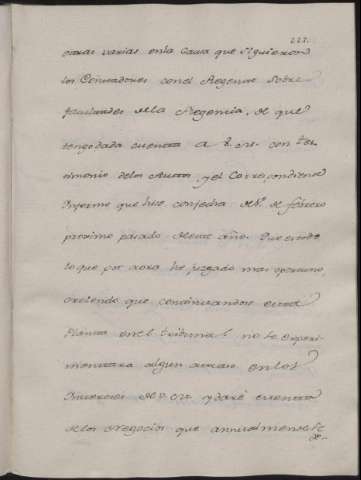 227.
otras varias en la Causa que siguieron
los Contadores con el Regente sobre
facultades de la Regencia, de que
tengo dada cuenta a V. M. con tes
timonio de los Autos, y el Correspondiente
Informe que hise con fecha de de febrero
proximo pasado de este año. Que es todo
lo que por aora he juzgado mas oportuno,
creiendo que continuandose esta
Planta en el tribunal no se experi
mentara algun atraso en los
Intereses de V. M. y daré cuenta
de los Negocios que annualmente se